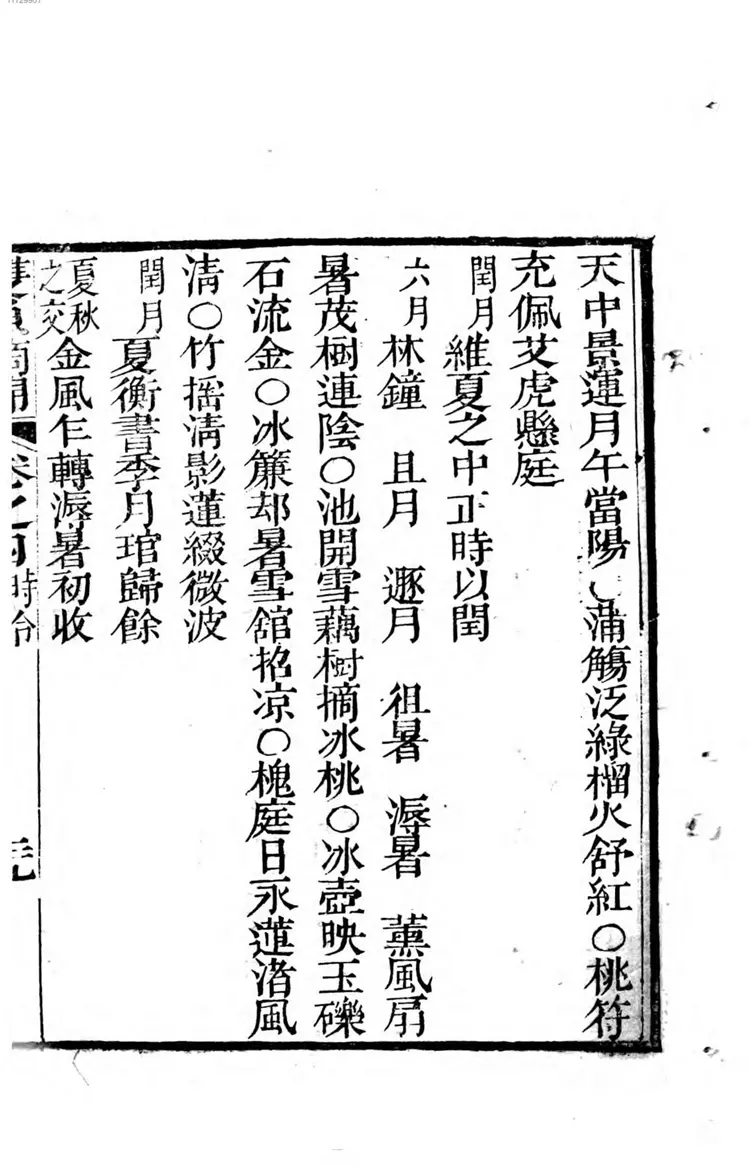 天中景運月午當陽○蒲觴泛綠榴火舒紅○桃符
充佩艾虎懸庭
閏月維夏之中正時以閏
六月林鐘 且月 遯月 徂暑 溽暑 薰風扇
暑茂樹連陰○池開雪藕樹摘冰桃○冰壺映玉礫
石流金○冰簾却暑雪館招凉○槐庭日永蓮渚風
淸○竹搖淸影蓮綴微波
閏月夏衡書季月琯歸餘
夏秋之交金風乍轉溽暑初收
卷之 時令
11129907